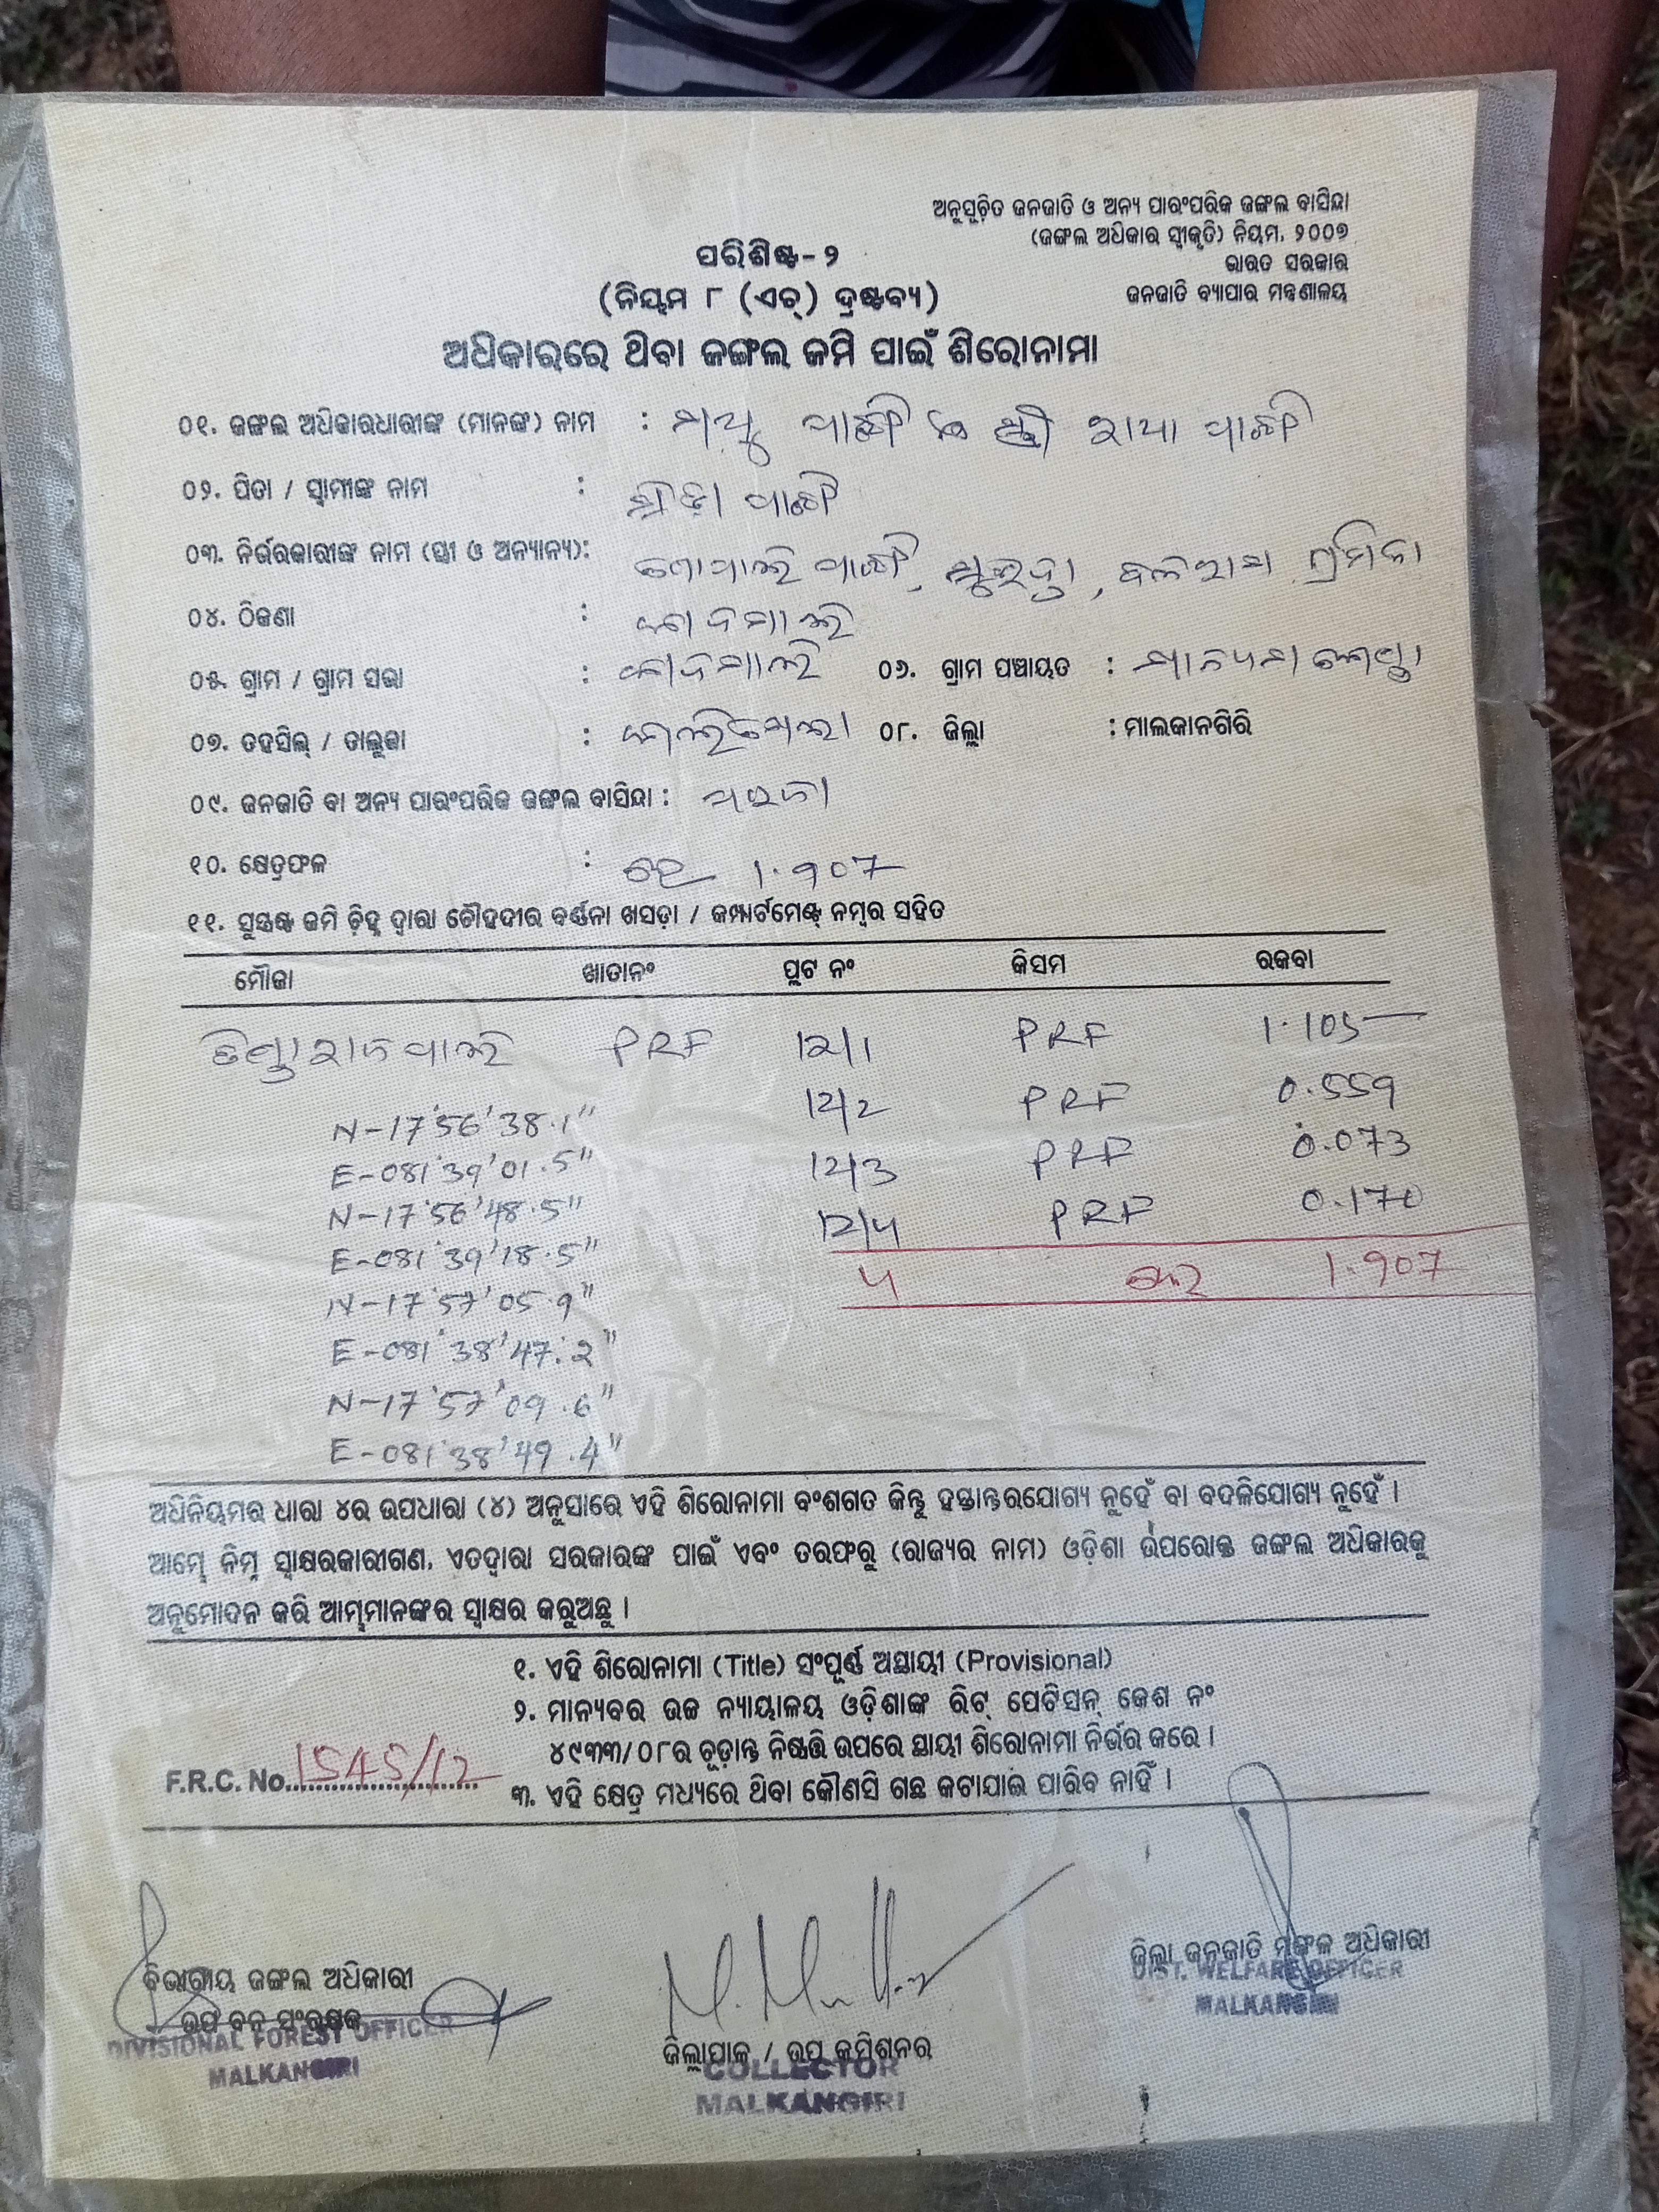 ଅନୁସୂଚିତ ଜନଜାତି ଓ ଅନ୍ୟ ପାରଂପରିକ ଜଙ୍ଗଲ ବାସିନ୍ଦା
(ଜଙ୍ଗଲ ଅଧିକାର ସ୍ୱୀକୃତି) ନିୟମ, ୨୦୦୭
ଭାରତ ସରକାର
ଜନଜାତି ବ୍ୟାପାର ମନ୍ତ୍ରଣାଳୟ
ପରିଶିଷ୍ଟ-୨
(ନିୟମ ୮ (ଏଚ୍) ଦ୍ରଷ୍ଟବ୍ୟ)
ଅଧିକାରରେ ଥିବା ଜଙ୍ଗଲ ଜମି ପାଇଁ ଶିରୋନାମା
୦୧. ଜଙ୍ଗଲ ଅଧିକାରଧାରୀଙ୍କ (ମାନଙ୍କ) ନାମ :
୦୨. ପିତା / ସ୍ୱାମୀଙ୍କ ନାମ :
୦୩. ନିର୍ଭରକାରୀଙ୍କ ନାମ (ସ୍ତ୍ରୀ ଓ ଅନ୍ୟାନ୍ୟ):
୦୪. ଠିକଣା :
୦୫. ଗ୍ରାମ / ଗ୍ରାମ ସଭା : ୦୬. ଗ୍ରାମ ପଞ୍ଚାୟତ :
୦୭. ତହସିଲ୍ / ତାଲୁକା : କାଲିମେଳା ୦୮. ଜିଲ୍ଲା : ମାଲକାନଗିରି
୦୯. ଜନଜାତି ବା ଅନ୍ୟ ପାରଂପରିକ ଜଙ୍ଗଲ ବାସିନ୍ଦା : ପରଜା
୧୦. କ୍ଷେତ୍ରଫଳ : ହେ 1.907
୧୧. ସୁସ୍ପଷ୍ଟ ଜମି ଚିହ୍ନ ଦ୍ୱାରା ଚୌହଦୀର ବର୍ଣ୍ଣନା ଖସଡ଼ା / କମ୍ପାର୍ଟମେଣ୍ଟ୍ ନମ୍ବର ସହିତ
ମୌଜା ଖାତାନଂ ପ୍ଲଟ ନଂ କିସମ ରକବା
PRF 12/1 PRF 1.105
12/2 PRF 0.559
N-17°56'38.1"
12/3 PRF 0.073
E-081°39'01.5"
12/4 PRF 0.170
N-17°56'48.5"
E-081°39'18.5"
4 1.907
N-17°57'05.9"
E-081°38'47.2"
N-17°57'09.6"
E-081°38'49.4"
ଅଧିନିୟମର ଧାରା ୪ର ଉପଧାରା (୪) ଅନୁସାରେ ଏହି ଶିରୋନାମା ବଂଶଗତ କିନ୍ତୁ ହସ୍ତାନ୍ତରଯୋଗ୍ୟ ନୁହେଁ ବା ବଦଳିଯୋଗ୍ୟ ନୁହେଁ ।
ଆମ୍ଭେ ନିମ୍ନ ସ୍ୱାକ୍ଷରକାରୀଗଣ, ଏତଦ୍ଦ୍ୱାରା ସରକାରଙ୍କ ପାଇଁ ଏବଂ ତରଫରୁ (ରାଜ୍ୟର ନାମ) ଓଡ଼ିଶା ଉପରୋକ୍ତ ଜଙ୍ଗଲ ଅଧିକାରକୁ
ଅନୁମୋଦନ କରି ଆମ୍ଭମାନଙ୍କର ସ୍ୱାକ୍ଷର କରୁଅଛୁ ।
୧. ଏହି ଶିରୋନାମା (Title) ସଂପୂର୍ଣ୍ଣ ଅସ୍ଥାୟୀ (Provisional)
୨. ମାନ୍ୟବର ଉଚ୍ଚ ନ୍ୟାୟାଳୟ ଓଡ଼ିଶାଙ୍କ ରିଟ୍ ପେଟିସନ୍ କେଶ ନଂ
୪୯୩୩/୦୮ର ଚୂଡ଼ାନ୍ତ ନିଷ୍ପତ୍ତି ଉପରେ ସ୍ଥାୟୀ ଶିରୋନାମା ନିର୍ଭର କରେ ।
F.R.C. No. 1545/12
୩. ଏହି କ୍ଷେତ୍ର ମଧ୍ୟରେ ଥିବା କୌଣସି ଗଛ କଟାଯାଇ ପାରିବ ନାହିଁ ।
ଜିଲ୍ଲା ଜନଜାତି ମଙ୍ଗଳ ଅଧିକାରୀ
DIST. WELFARE OFFICER
MALKANGIRI
ବିଭାଗୀୟ ଜଙ୍ଗଲ ଅଧିକାରୀ
ଉପ ବନ ସଂରକ୍ଷକ
DIVISIONAL FOREST OFFICER
MALKANGIRI
ଜିଲ୍ଲାପାଳ / ଉପ କମିଶନର
COLLECTOR
MALKANGIRI